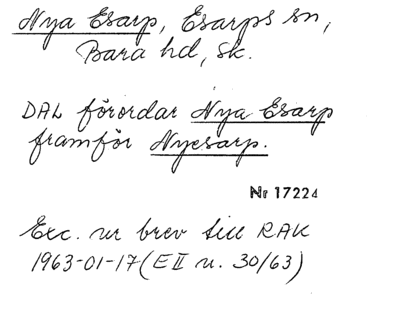 Nya Esarp, Esarps sn,
Bara hd, Sk.
DAL förordar Nya Esarp
framför Nyesarp.
Nr 17224
Exc. ur brev till RAK
1963-01-17 (E II u. 30/63)